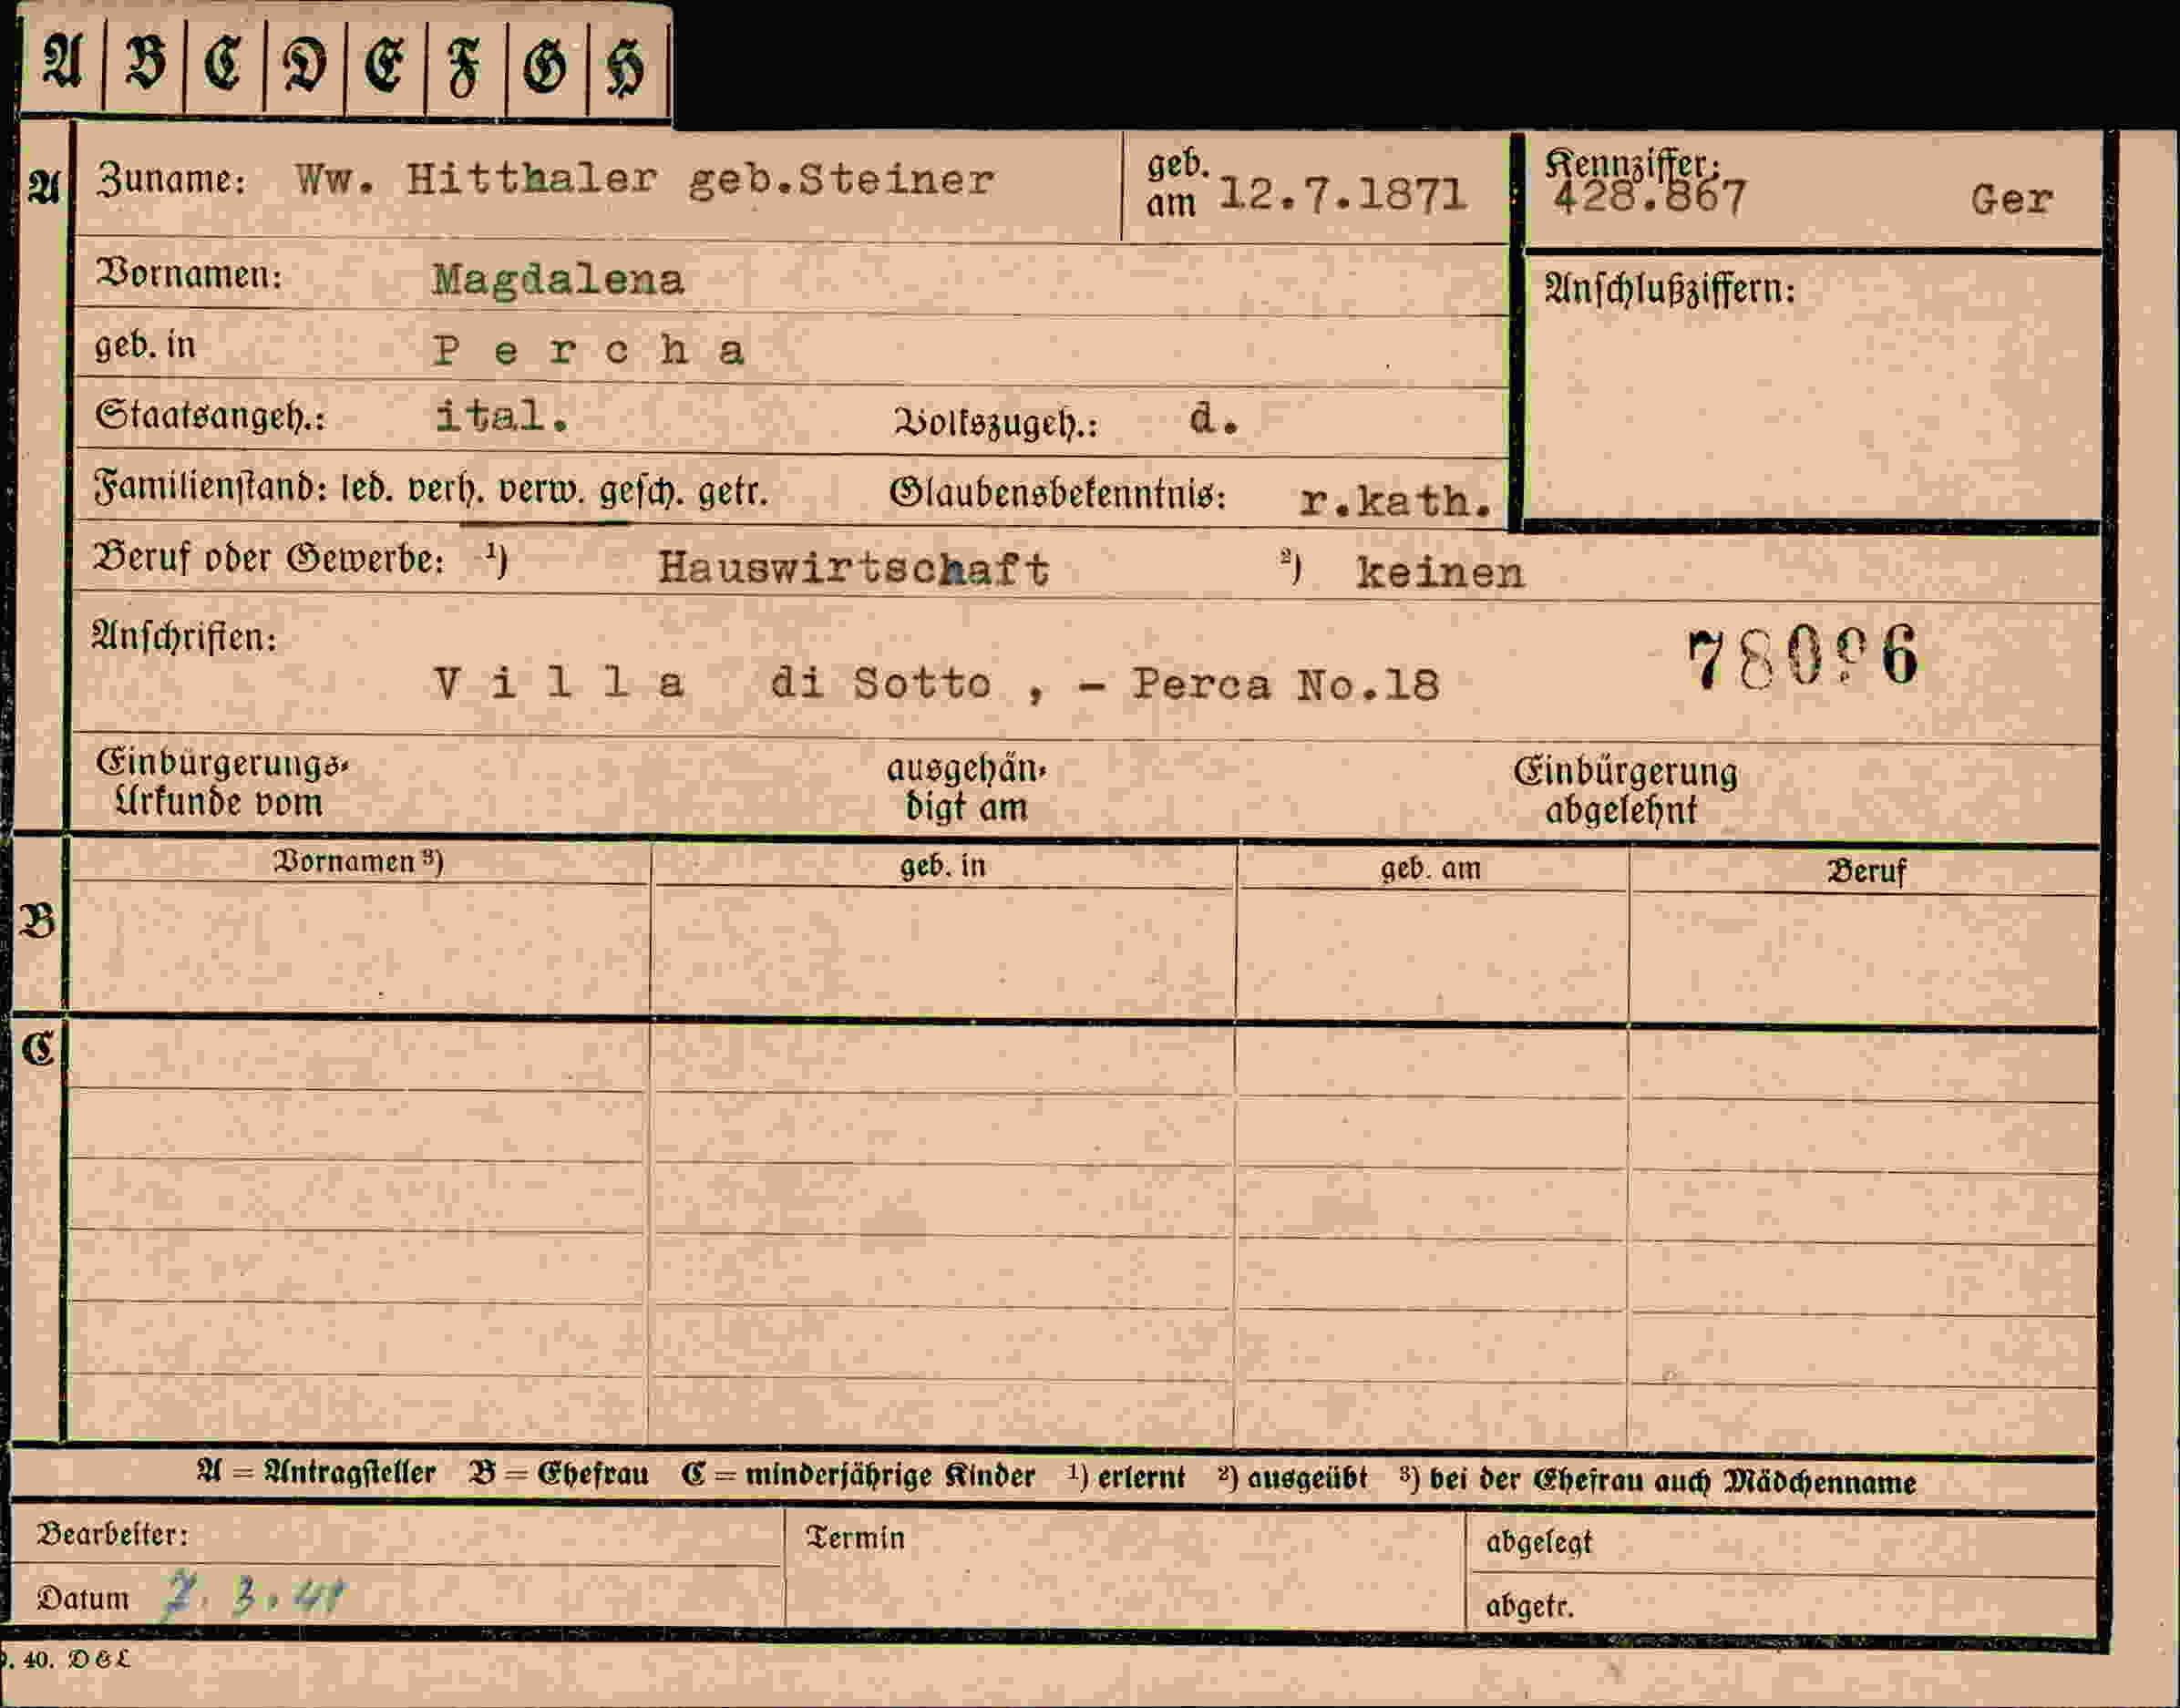 A B C D E F G H
A Zuname: Ww. Hitthaler geb.Steiner geb. am 12.7.1871 Kennziffer: 428.867 Ger
Vornamen: Magdalena Anschlußziffern:
geb. in Percha
Staatsangeh.: ital. Volkszugeh.: d.
Familienstand: led. verh. verw. gesch. getr. Glaubensbekenntnis: r.kath.
Beruf oder Gewerbe: ¹) Hauswirtschaft ²) keinen
Anschriften:
Villa di Sotto , - Perca No.18
Einbürgerungs- ausgehän- Einbürgerung
Urkunde vom digt am abgelehnt
Vornamen ³) geb. in geb. am Beruf
B
C
A = Antragsteller B = Ehefrau C = minderjährige Kinder ¹) erlernt ²) ausgeübt ³) bei der Ehefrau auch Mädchenname
Bearbeiter: Termin abgelegt
Datum 7. 3. 41 abgetr.
40. D&L